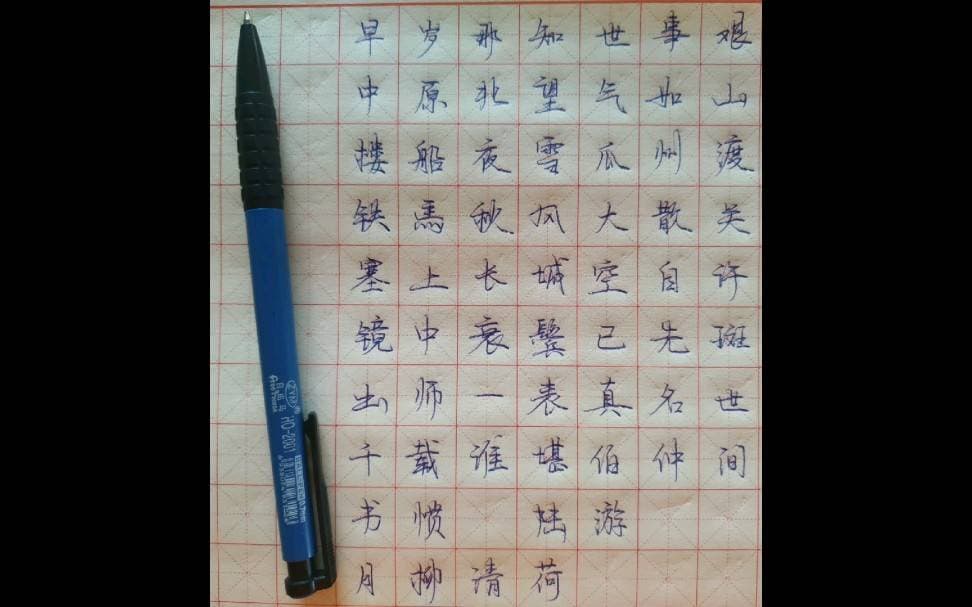 早岁那知世事艰
中原北望气如山
楼船夜雪瓜州渡
铁马秋风大散关
塞上长城空自许
镜中衰鬓已先斑
出师一表真名世
千载谁堪伯仲间
书愤 陆游
月柳清荷